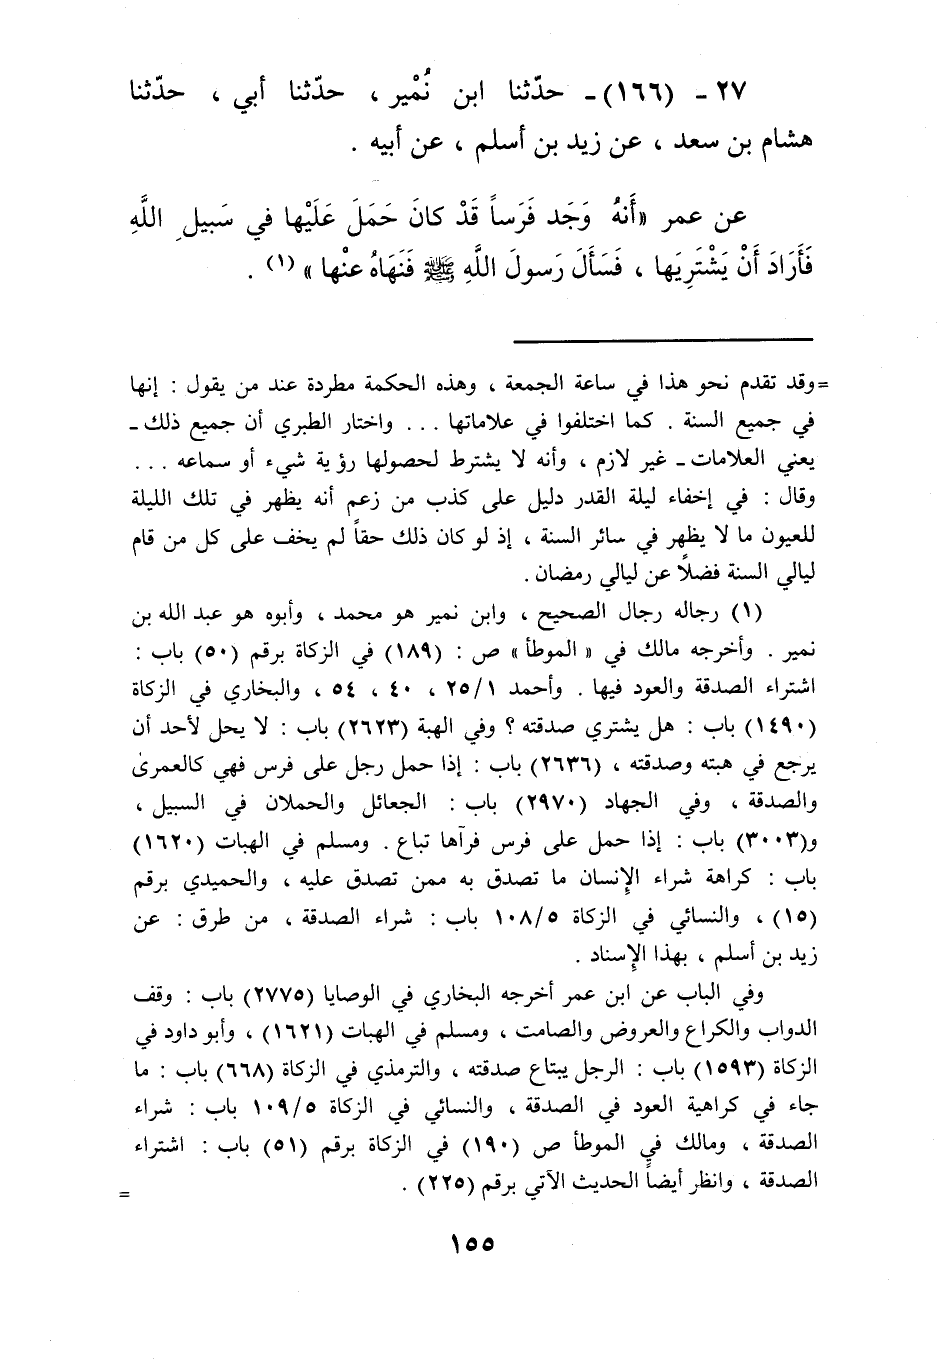 ٢٧ - (١٦٦) - حدّثنا ابن نُمْير ، حدّثنا أبي ، حدّثنا
هشام بن سعد ، عن زيد بن أسلم ، عن أبيه .
عن عمر «أَنهُ وَجَد فَرَساً قَدْ كانَ حَمَلَ عَلَيْها في سَبيلِ اللَّهِ
فَأَرَادَ أَنْ يَشْتَرِيَها ، فَسأَلَ رَسولَ اللَّهِ ﷺ فَنَهَاهُ عنْها» (١) .
=وقد تقدم نحو هذا في ساعة الجمعة ، وهذه الحكمة مطردة عند من يقول : إنها
في جميع السنة . كما اختلفوا في علاماتها ... واختار الطبري أن جميع ذلك -
يعني العلامات - غير لازم ، وأنه لا يشترط لحصولها رؤية شيء أو سماعه ...
وقال : في إخفاء ليلة القدر دليل على كذب من زعم أنه يظهر في تلك الليلة
للعيون ما لا يظهر في سائر السنة ، إذ لو كان ذلك حقاً لم يخف على كل من قام
ليالي السنة فضلاً عن ليالي رمضان .
(١) رجاله رجال الصحيح ، وابن نمير هو محمد ، وأبوه هو عبد الله بن
نمير . وأخرجه مالك في «الموطأ» ص : (١٨٩) في الزكاة برقم (٥٠) باب :
اشتراء الصدقة والعود فيها . وأحمد ٢٥/١ ، ٤٠ ، ٥٤ ، والبخاري في الزكاة
(١٤٩٠) باب : هل يشتري صدقته ؟ وفي الهبة (٢٦٢٣) باب : لا يحل لأحد أن
يرجع في هبته وصدقته ، (٢٦٣٦) باب : إذا حمل رجل على فرس فهي كالعمرىٰ
والصدقة ، وفي الجهاد (٢٩٧٠) باب : الجعائل والحملان في السبيل ،
و(٣٠٠٣) باب : إذا حمل على فرس فرآها تباع . ومسلم في الهبات (١٦٢٠)
باب : كراهة شراء الإنسان ما تصدق به ممن تصدق عليه ، والحميدي برقم
(١٥) ، والنسائي في الزكاة ١٠٨/٥ باب : شراء الصدقة ، من طرق : عن
زيد بن أسلم ، بهذا الإسناد .
وفي الباب عن ابن عمر أخرجه البخاري في الوصايا (٢٧٧٥) باب : وقف
الدواب والكراع والعروض والصامت ، ومسلم في الهبات (١٦٢١) ، وأبو داود في
الزكاة (١٥٩٣) باب : الرجل يبتاع صدقته ، والترمذي في الزكاة (٦٦٨) باب : ما
جاء في كراهية العود في الصدقة ، والنسائي في الزكاة ١٠٩/٥ باب : شراء
الصدقة ، ومالك في الموطأ ص (١٩٠) في الزكاة برقم (٥١) باب : اشتراء
الصدقة ، وانظر أيضاً الحديث الآتي برقم (٢٢٥) . =
١٥٥